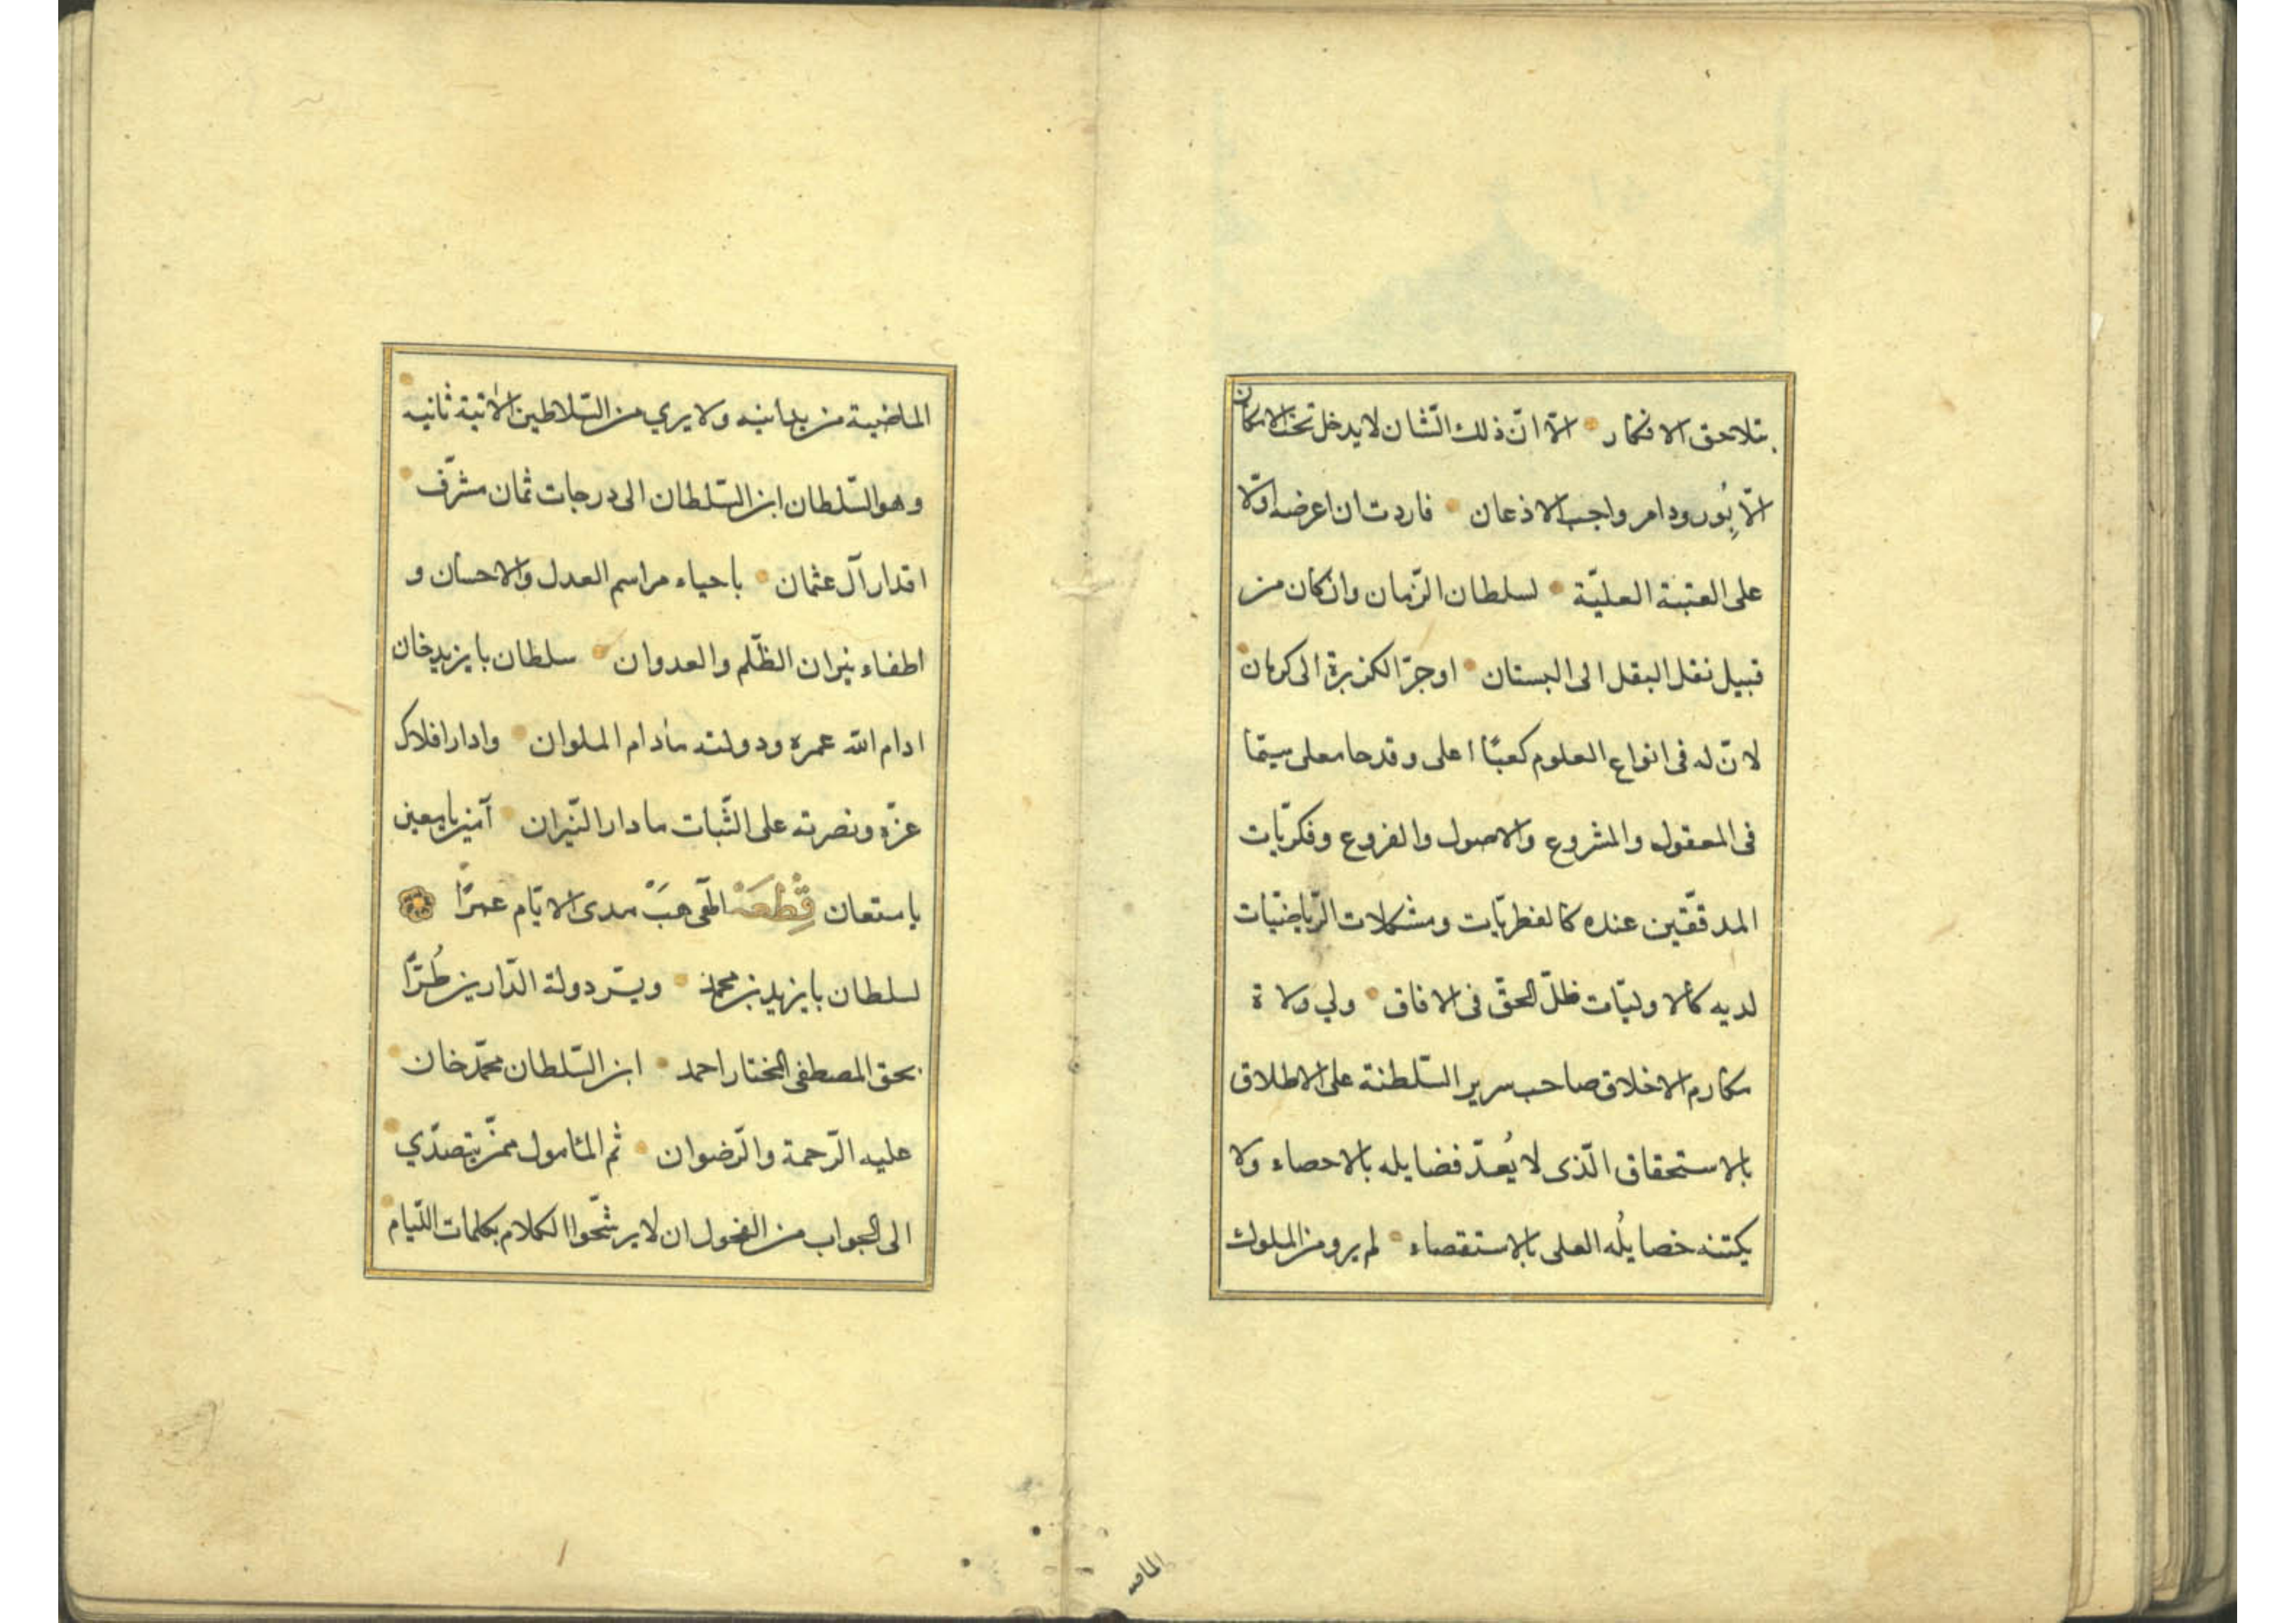 بتلاحق الافكار الّا انّ ذلك الشّان لا يدخل تحت الامكان
الّا بُورود امر واجب الاذعان فاردت ان اعرضه اوّلا
على العتبة العليّة لسلطان الزّمان وان كان من
قبيل نقل البقل الى البستان او جرّ الكزبرة الى كرمان
لانّ له فى انواع العلوم كعبًا اعلى وقدحا معلى سيّما
فى المعقول والمشروع والاصول والفروع وفكريّات
المدقّقين عنده كالفطريّات ومشكلات الرّياضيّات
لديه كالاوليّات ظلّ الحقّ فى الافاق ولي ولاة
مكارم الاخلاق صاحب سرير السّلطنة على الاطلاق
بالاستحقاق الّذى لا يُعدّ فضايله بالاحصاء ولا
يكتنه خصايلُه العلى بالاستقصاء لم يرو من الملوك
الماضية من يدانيه ولا يري من السّلاطين الاتية ثانيه
وهو السّلطان ابن السّلطان الى درجات ثمان مشرّف
اقدار آل عثمان باحياء مراسم العدل والاحسان و
اطفاء نيران الظّلم والعدوان سلطان بايزيد خان
ادام الله عمره ودولته مادام الملوان وادار افلاك
عزّه ونصرته على الثّبات ما دار النّيران آمين يا معين
يا ستعان قِطْعَة الٓهى هَبْ مدى الايّام عمرًا
لسلطان بايزيد بن محمد ويسّر دولة الدّارين طُرًّا
بحق المصطفى المختار احمد ابن السّلطان محمّد خان
عليه الرّحمة والرّضوان ثم المأمول ممّن يتصدّي
الى الجواب من الفحول ان لا يرشّحوا الكلام بكلمات اللّيام